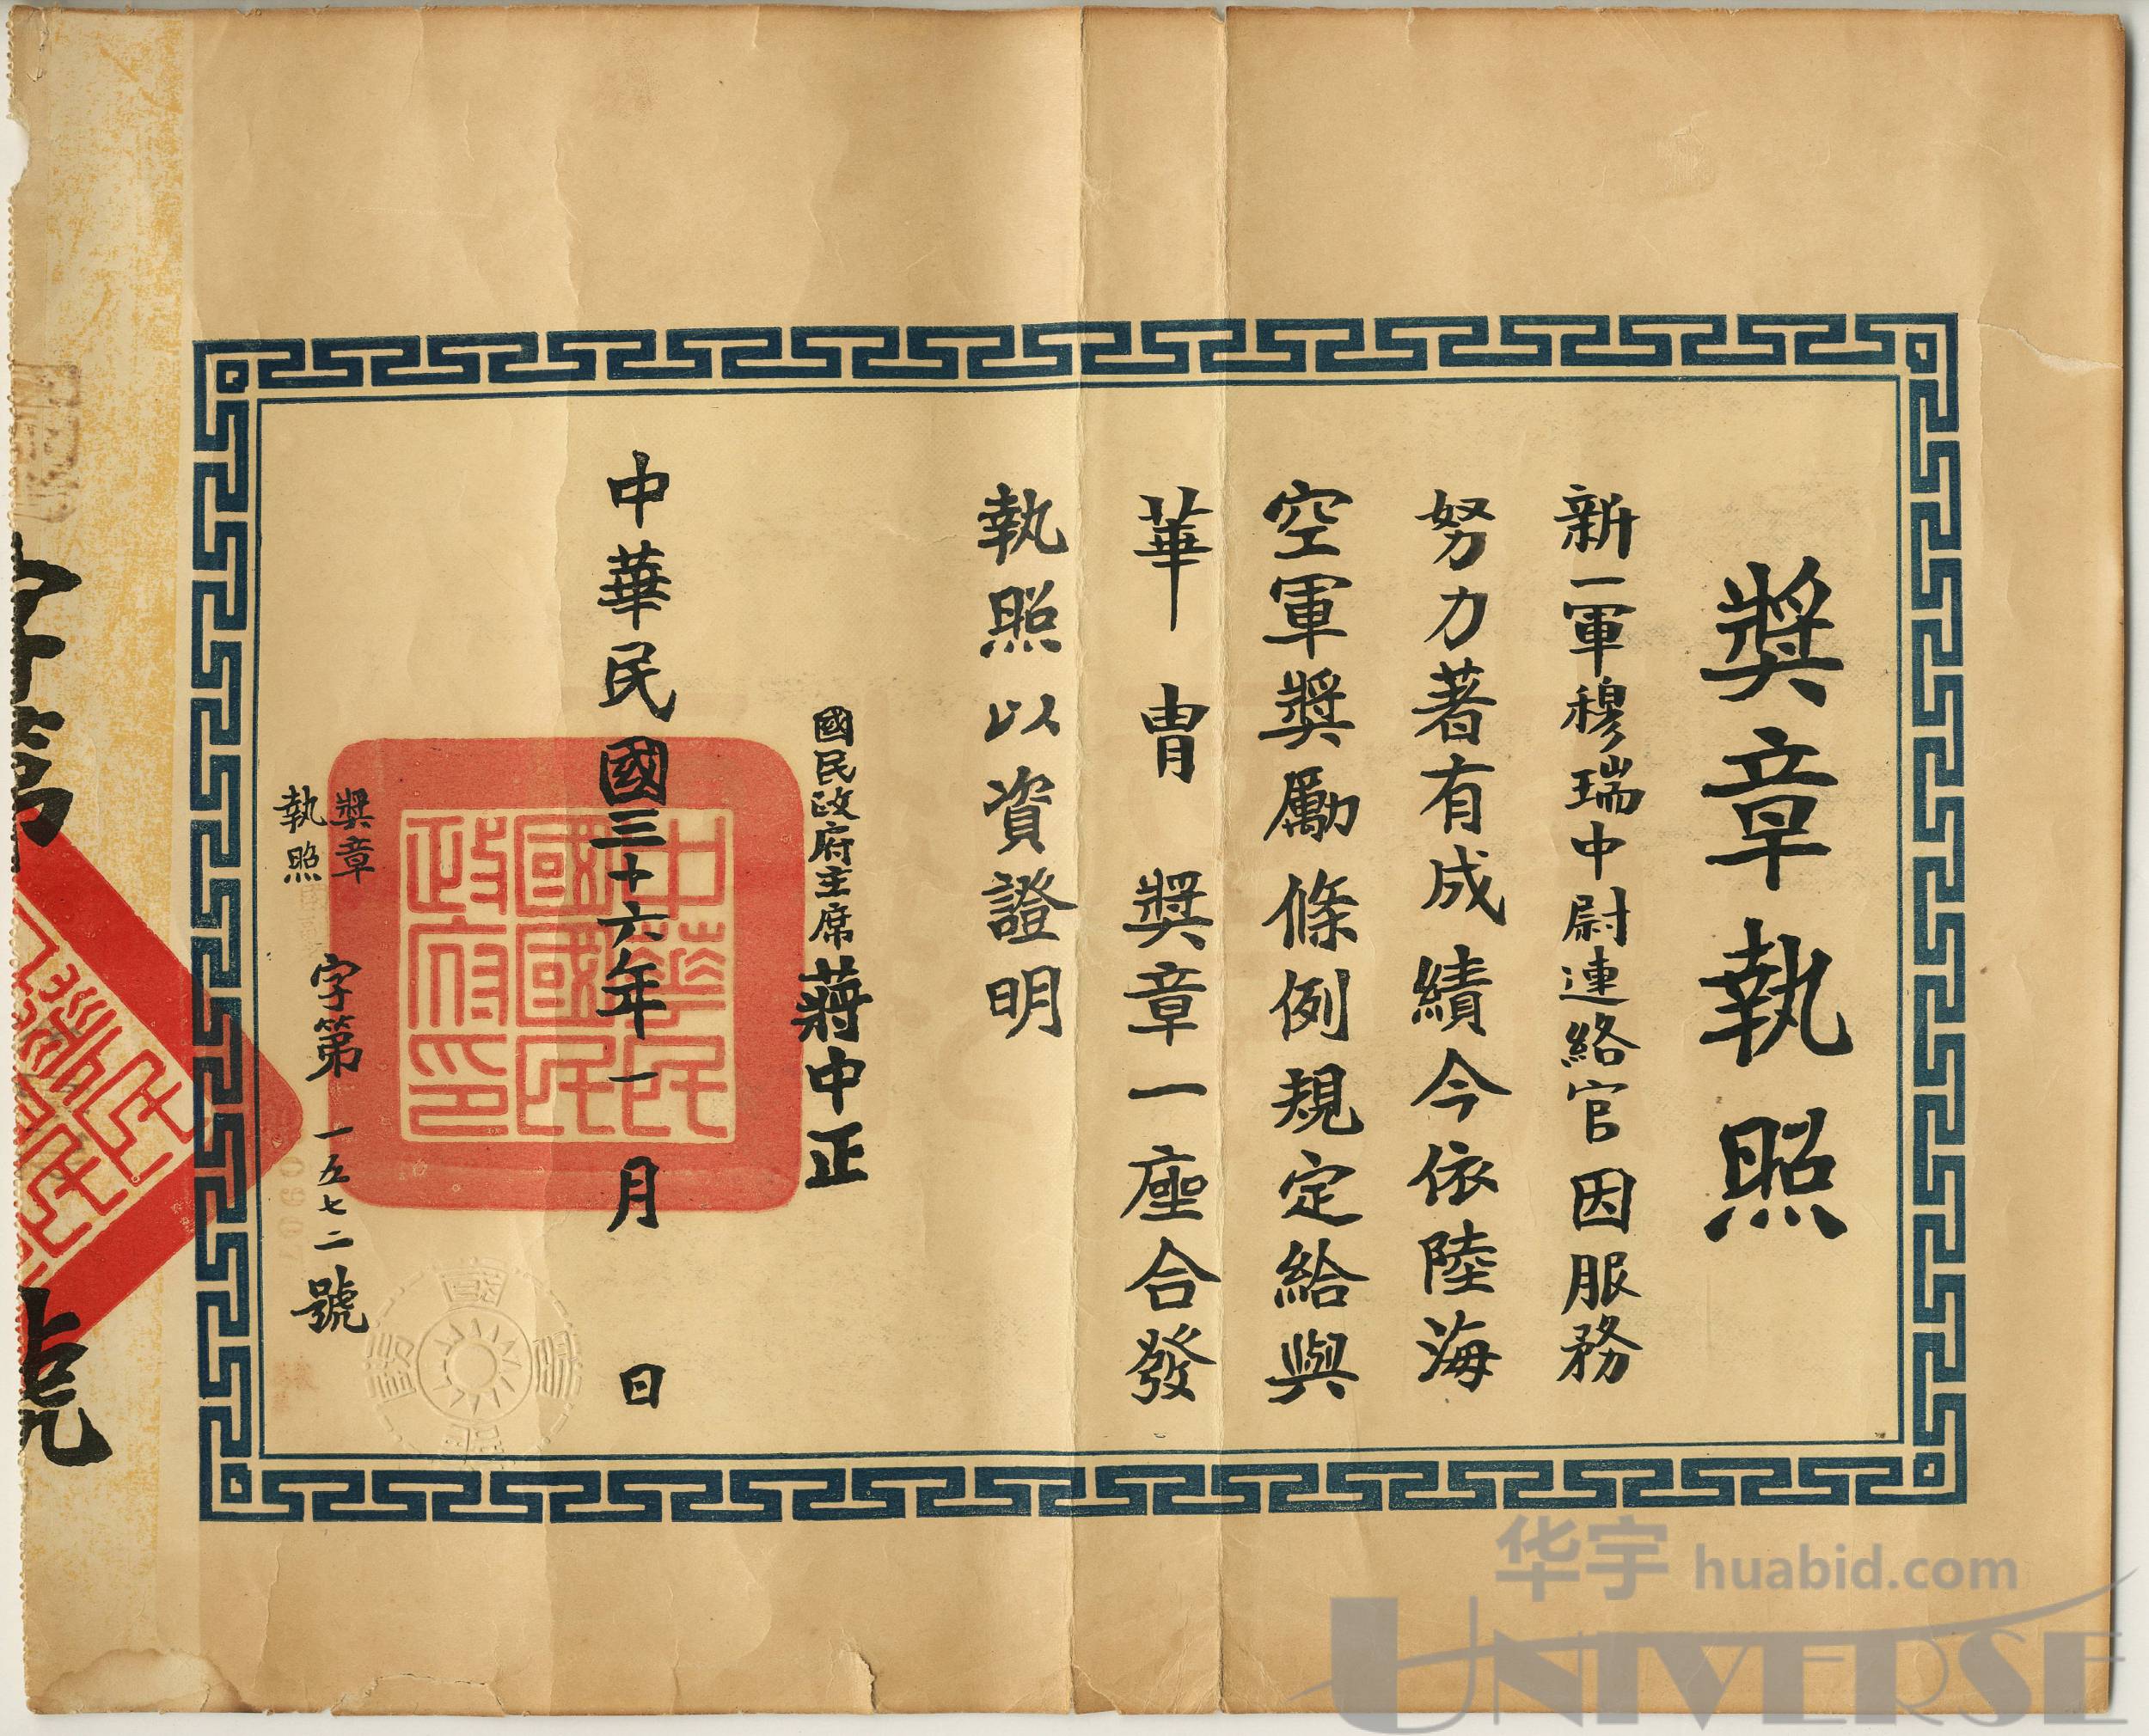 獎章執照
新一軍穆瑞中尉連絡官因服務
努力著有成績今依陸海
空軍獎勵條例規定給與
華胄獎章一座合發
執照以資證明
國民政府主席蔣中正
中華民國三十六年一月 日
中華民國國民政府印
獎章執照 字第一五七二號
字第 號
华宇 huabid.com
UNIVERSE